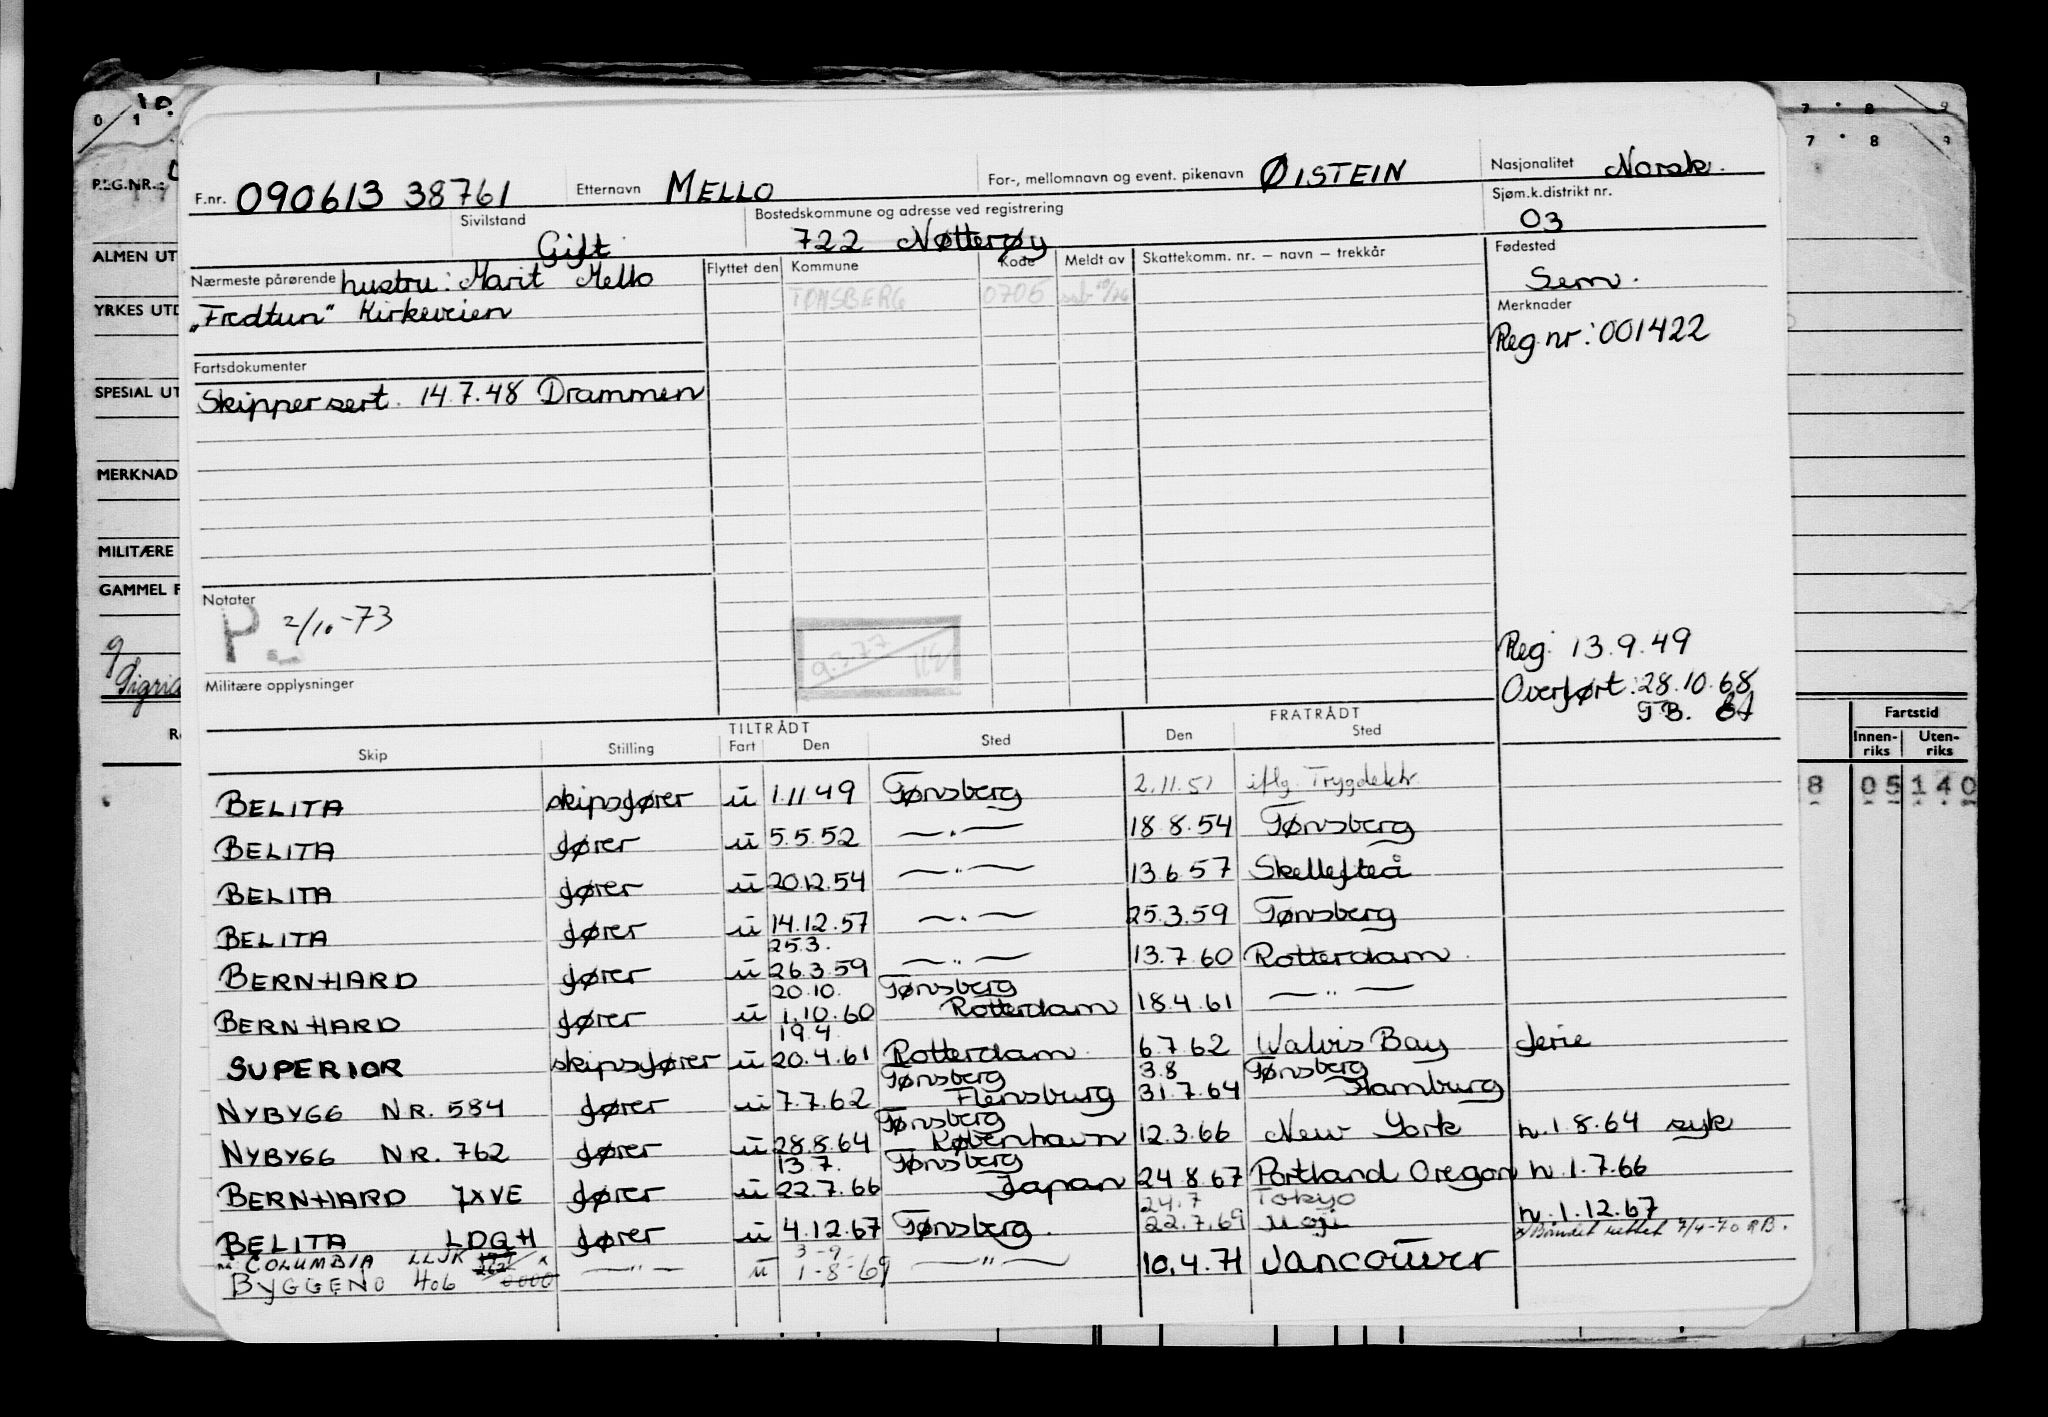 F.nr. 090613 38761 Etternavn MELLO For-, mellomnavn og event. pikenavn ØISTEIN Nasjonalitet Norsk.
Sivilstand Gift Bostedskommune og adresse ved registrering 722 Nøtterøy Sjøm.k.distrikt nr. 03
Nærmeste pårørende hustru: Marit Mello Flyttet den Kommune Kode Meldt av Skattekomm. nr. – navn – trekkår Fødested Sem.
"Fredtun" Kirkeveien TØNSBERG 0705
Merknader
Reg.nr: 001422
Fartsdokumenter
Skippersert. 14.7.48 Drammen
Notater
P 2/10-73
9.3.77
Reg. 13.9.49
Overført: 28.10.68
T.B.
Militære opplysninger
TILTRÅDT FRATRÅDT
Skip Stilling Fart Den Sted Den Sted
BELITA skipsfører u 1.11 49 Tønsberg 2.11.51 iflg. Trygdektr.
BELITA fører u 5.5.52 —"— 18.8.54 Tønsberg
BELITA fører u 20.12.54 —"— 13.6 57 Skellefteå
BELITA fører u 14.12.57 —"— 25.3.59 Tønsberg
25.3.
BERNHARD fører u 26.3.59 —"— 13.7.60 Rotterdam
20.10. Tønsberg
BERNHARD fører u 1.10.60 Rotterdam 18.4.61 —"—
19.4
SUPERIOR skipsfører u 20.4.61 Rotterdam 6.7.62 Walvis Bay ferie
Tønsberg 3.8 Tønsberg
NYBYGG NR. 584 fører u 7.7.62 Flensburg 31.7.64 Hamburg
Tønsberg
NYBYGG NR. 762 fører u 28.8.64 København 12.3.66 New York h. 1.8.64 syk
13.7. Tønsberg
BERNHARD JXVE fører u 22.7.66 Japan 24.8.67 Portland Oregon h. 1.7.66
24.7 Tokyo
BELITA LDQH fører u 4.12.67 Tønsberg. 22.7.69 Moji h. 1.12.67
nå COLUMBIA LLJK 3-9- 7/4-70 RB.
BYGGENO 406 0000 —"— u 1-8-69 —"— 10.4.71 VANCOUVER
0 1
REG.NR.:
ALMEN UT
YRKES UTD
SPESIAL UT
MERKNAD
MILITÆRE
GAMMEL F
7 8 9
7 8 9
Fartstid
Innen-riks Uten-riks
8 05 140